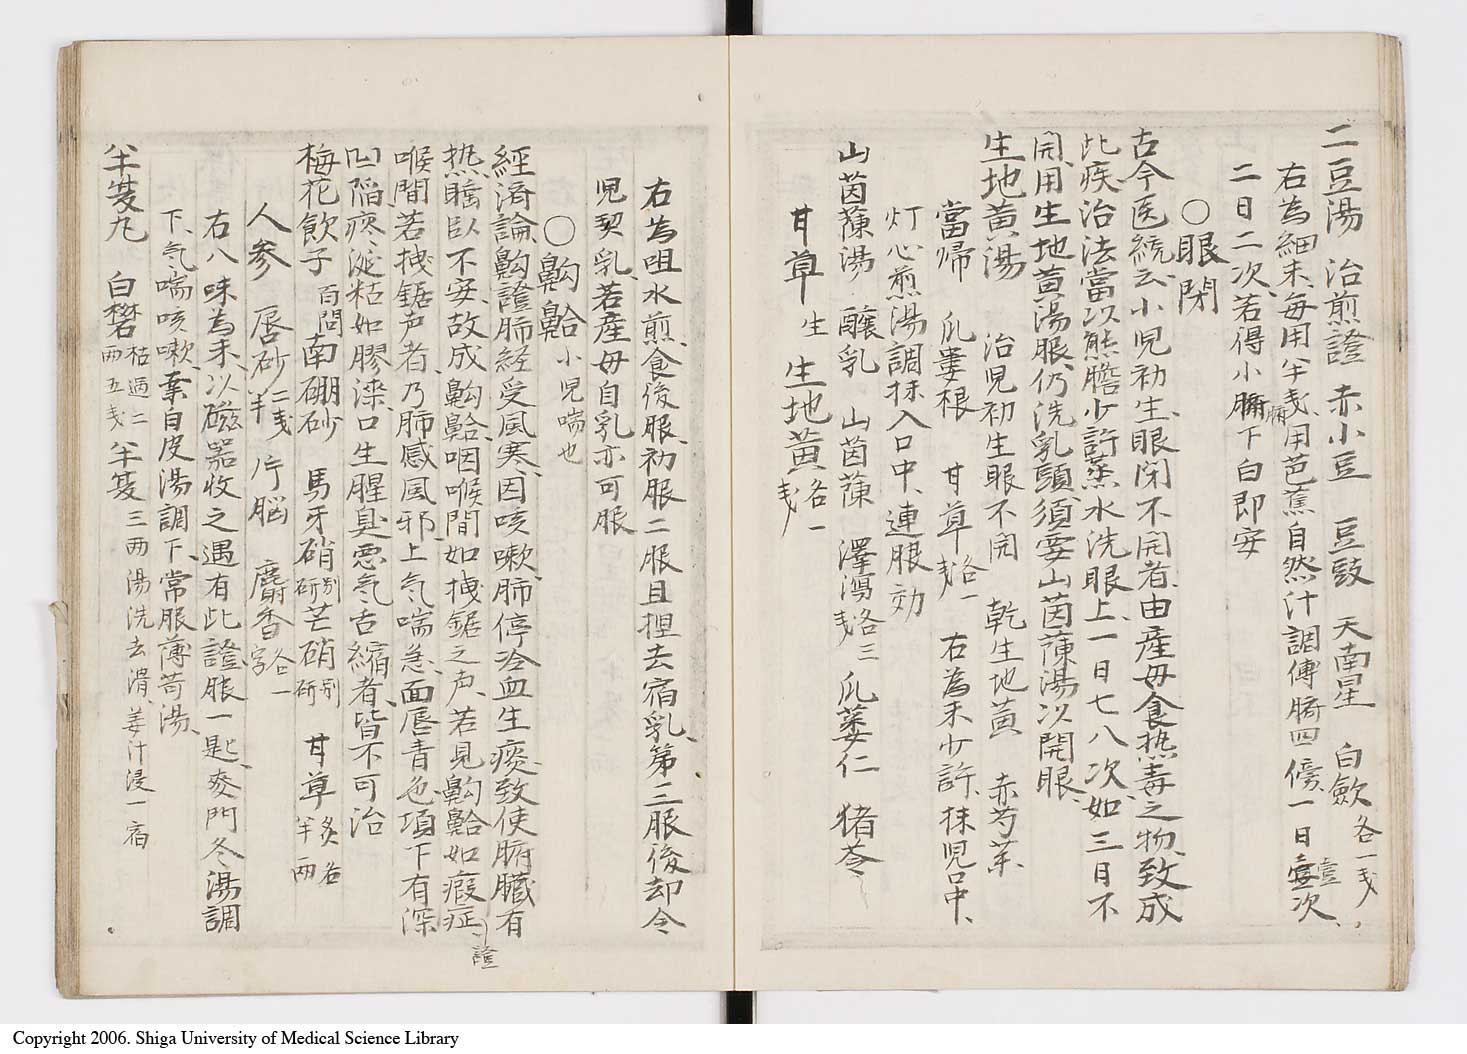 二豆湯 治煎證 赤小豆 豆豉 天南星 白歛各一戔
右為細末、毎用半戔、用芭蕉自然汁調傅臍四傍、一日壹次、
二日二次、若得小腑下白即安
○眼閉
古今医統云、小児初生、眼閉不開者、由産母食热毒之物、致成
此疾、治法當以熊膽少許蒸水洗眼上、一日七八次、如三日不
開、用生地黄湯服、仍洗乳頭、須要山茵蔯湯以開眼、
生地黄湯 治児初生眼不開 乾生地黄 赤芍薬
當帰 瓜蔞根 甘草各一戔 右為末少許、抹児口中、
灯心煎湯調抹入口中、連服効
山茵蔯湯 釀乳 山茵蔯 澤瀉各三戔 瓜蔞仁 猪苓
甘草生 生地黄各一戔
右為咀水煎、食後服、初服二服且捏去宿乳、第三服後却令
児契乳、若産母自乳亦可服
○齁䶎小児喘也
經済論、齁證肺經受風寒、因咳嗽、肺停冷血生痰、致使腑臓有
热、睡臥不安、故成齁䶎、咽喉間如拽鋸之声、若見齁䶎如瘕症證
喉間若拽鋸声者、乃肺感風邪、上气喘急、面唇青色、項下有深
凹陥、痰涎粘如膠漆、口生腥臭悪气、舌縮者、皆不可治
梅花飲子百問 南硼砂 馬牙硝別研 芒硝別研 甘草炙各半兩
人參 唇砂二戔半 片脳 麝香各一字
右八味為末、以磁器收之、遇有此證、服一匙、麥門冬湯調
下、气喘咳嗽、棄白皮湯調下、常服薄荷湯、
半夏丸 白礬枯過二兩五戔 半夏三两湯洗去滑、姜汁浸一宿
Copyright 2006. Shiga University of Medical Science Library